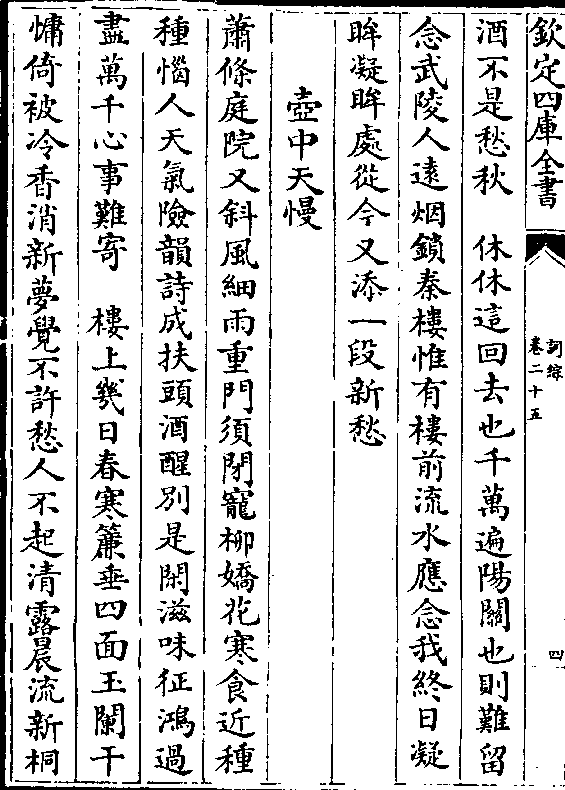 欽定四庫全書
詞綜
卷二十五
四
酒不是愁秋　休休這回去也千萬遍陽關也則難留
念武陵人遠烟鎖秦樓惟有樓前流水應念我終日凝
眸凝眸處從今又添一段新愁
壺中天慢
蕭條庭院又斜風細雨重門須閉寵柳嬌花寒食近種
種惱人天氣險韻詩成扶頭酒醒別是閑滋味征鴻過
盡萬千心事難寄　樓上幾日春寒簾垂四面玉闌干
慵倚被冷香消新夢覺不許愁人不起清露晨流新桐